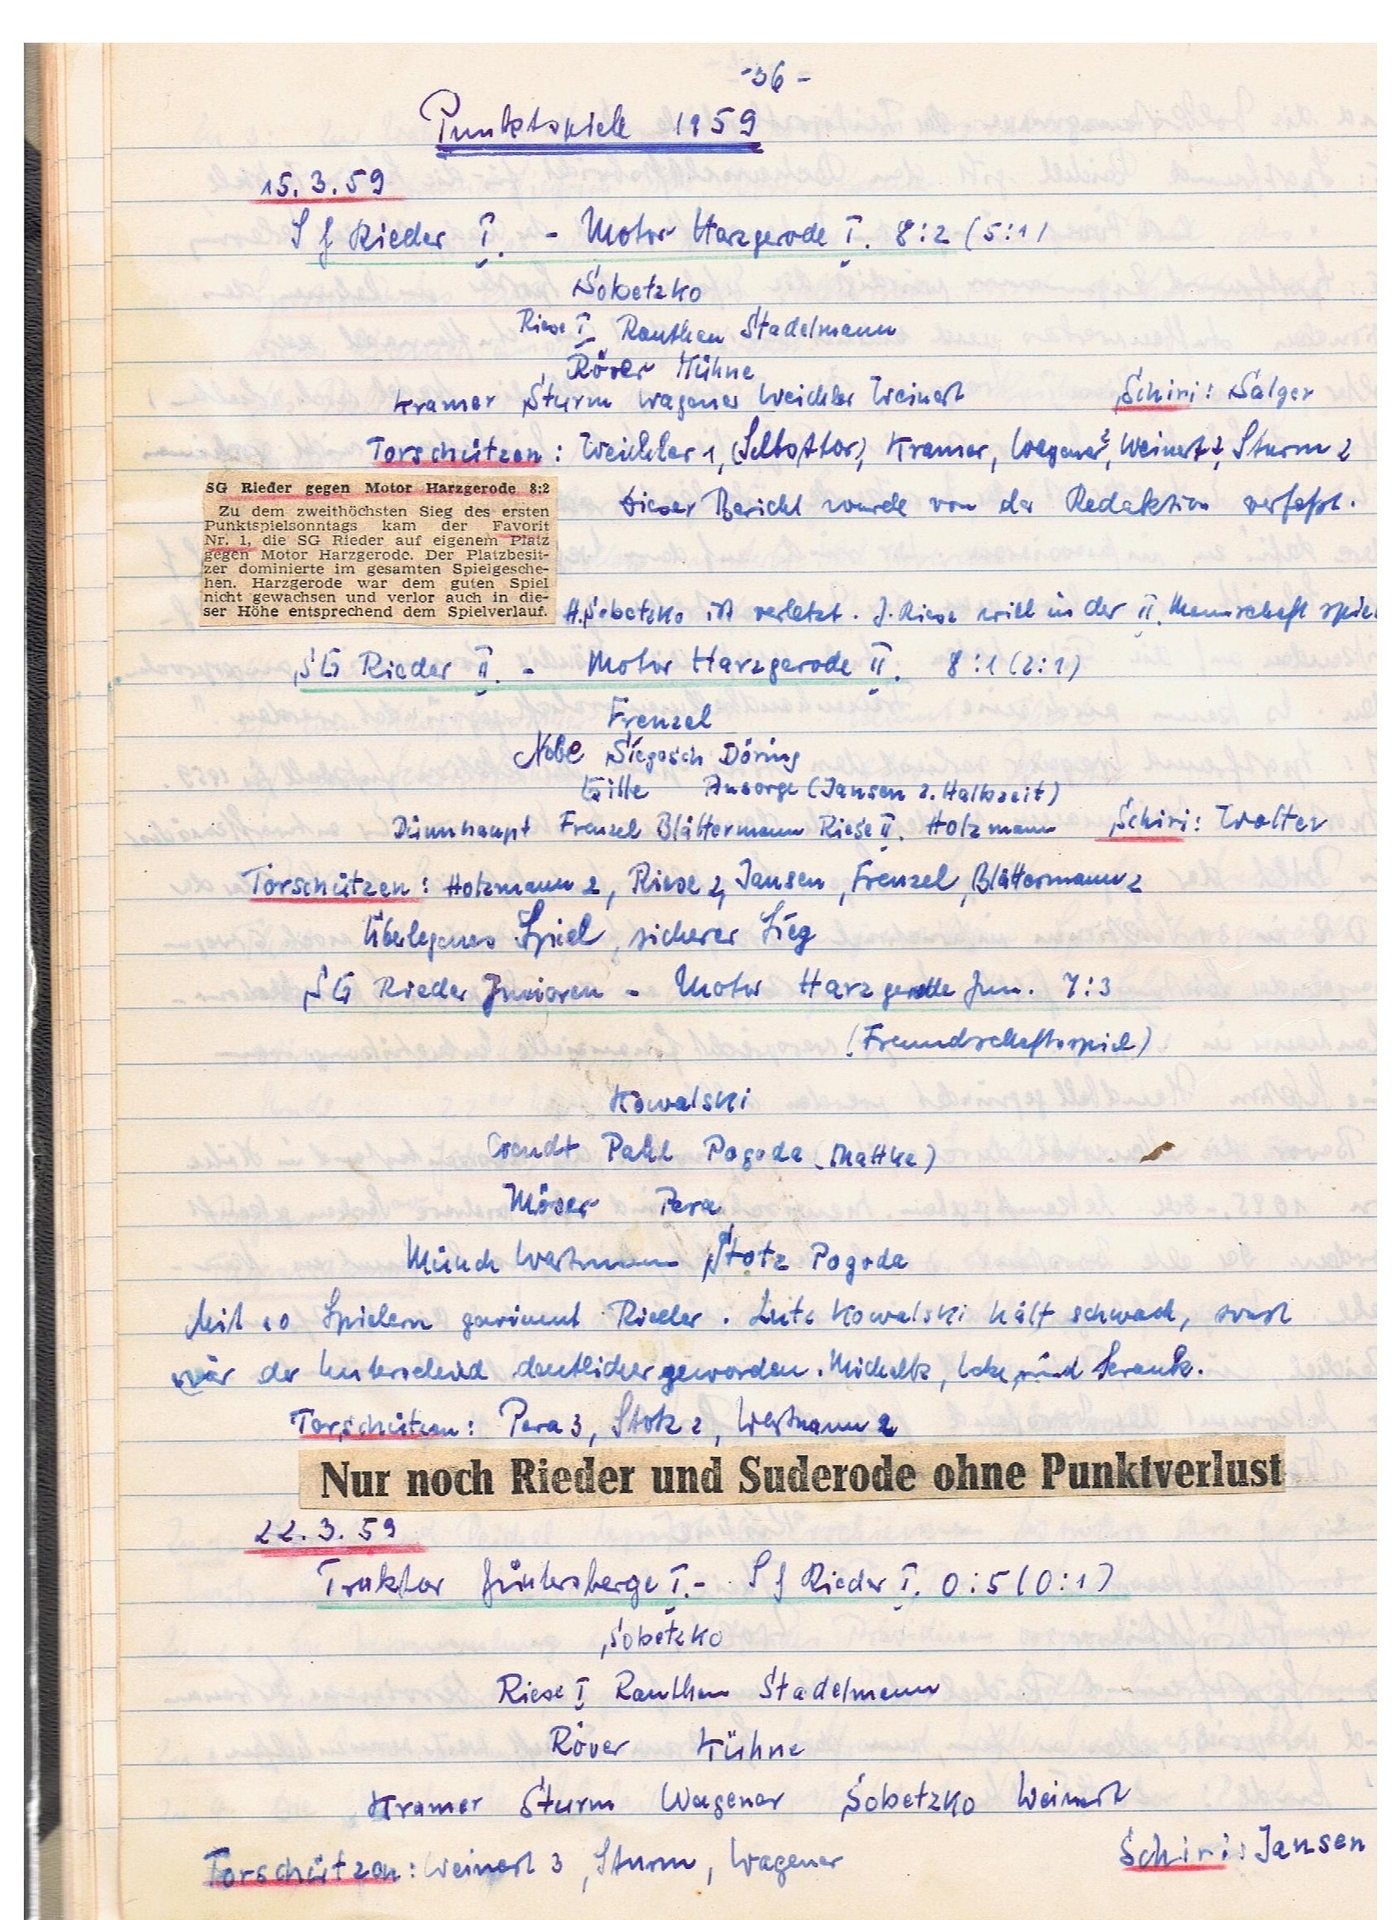 -36-
Punktspiele 1959
15.3.59
SG Rieder I. - Motor Harzgerode I. 8:2 (5:1)
Sobetzko
Riese I Ranthen Stadelmann
Röver Kühne
Kramer Sturm Wagener Weichler Weinert Schiri: Salger
Torschützen: Weichler 1, (Selbsttor), Kramer, Wagener 2, Weinert 2, Sturm 2
SG Rieder gegen Motor Harzgerode 8:2
Dieser Bericht wurde von der Redaktion verfaßt.
Zu dem zweithöchsten Sieg des ersten
Punktspielsonntags kam der Favorit
Nr. 1, die SG Rieder auf eigenem Platz
gegen Motor Harzgerode. Der Platzbesit-
zer dominierte im gesamten Spielgesche-
hen. Harzgerode war dem guten Spiel
nicht gewachsen und verlor auch in die-
ser Höhe entsprechend dem Spielverlauf.
H. Sobetzko ist verletzt. J. Riese will in der II. Mannschaft spiel
SG Rieder II. - Motor Harzgerode II. 8:1 (2:1)
Frenzel
Nobe Siegosch Döring
Gille Ansorge (Jansen 2. Halbzeit)
Dünnhaupt Frenzel Blättermann Riese II. Holzmann Schiri: Wolter
Torschützen: Holzmann 2, Riese 2, Jansen, Frenzel, Blättermann 2
Überlegenes Spiel, sicherer Sieg
SG Rieder Junioren - Motor Harzgerode Jun. 7:3
(Freundschaftsspiel)
Kowalski
Wendt Pahl Pogoda (Mattke)
Möser Pera
Münch Westmann Stotz Pogoda
Mit 10 Spielern gewinnt Rieder. Lutz Kowalski hält schwach, sonst
wär der Unterschied deutlicher geworden. sind krank.
Torschützen: Pera 3, Stotz 2, Westmann 2
Nur noch Rieder und Suderode ohne Punktverlust
22.3.59
Traktor Güntersberge I. - SG Rieder I. 0:5 (0:1)
Sobetzko
Riese I Ranthen Stadelmann
Röver Kühne
Kramer Sturm Wagener Sobetzko Weinert
Schiri: Jansen
Torschützen: Weinert 3, Sturm, Wagener